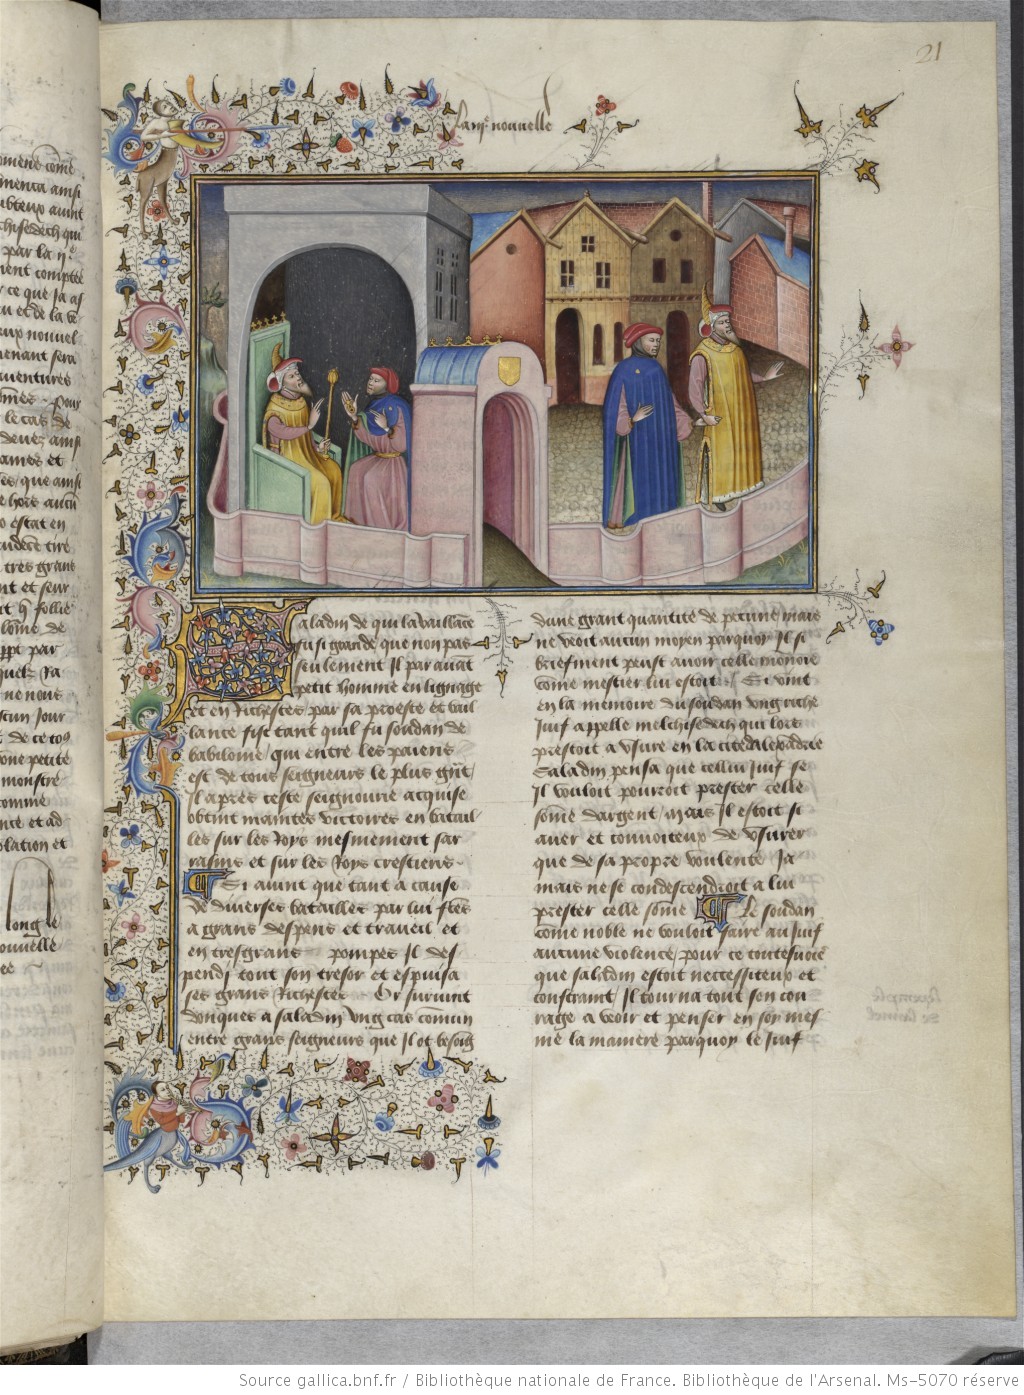 21
la iije nouuelle
Saladin de qui la vaillace
fu si grande que non pas
seulement Il par auat
petit homme en lignage
et en Richesses par sa proesse et vail
lance fist tant quil fu soudan de
babiloine / qui entre les paiens
est de tous seigneurs le plus gnt
Il apres ceste seignourie acquise
obtint maintes victoires en batail
les sur les Roys mesmement sar
rasins et sur les Roys crestiens
Si auint que tant a cause
de diuerses batailles par lui ftes
a grans despens et traueil et
en tresgrans pompes Il des
pendi tout son tresor et espuisa
ses grans Richesses Or suruint
donques a saladin vng cas comun
entre grans seigneurs que Il ot besoig
dune grant quantite de pecune mais
ne veoit aucun moyen parquoy Il si
briefment peust auoir celle monoie
come mestier lui estoit / Si vint
en la memoire du soudan vng riche
Juif appelle melchisedech qui lors
prestoit a vsure en la cite dalexadrie
Saladin pensa que cellui Juif se
Il vouloit pourroit prester celle
some dargent / mais Il estoit si
auer et conuoiteux de vsurer
que de sa propre voulente Ja
mais ne se condescendroit a lui
prester celle some Le soudan
come noble ne vouloit faire au Juif
aucune violence / pour ce toutesuoies
que saladin estoit neccessiteux et
constraint / Il tourna tout son cou
rage a veoir et penser en soy mes
me la maniere parquoy le Juif
Source gallica.bnf.fr / Bibliothèque nationale de France. Bibliothèque de l'Arsenal. Ms-5070 réserve